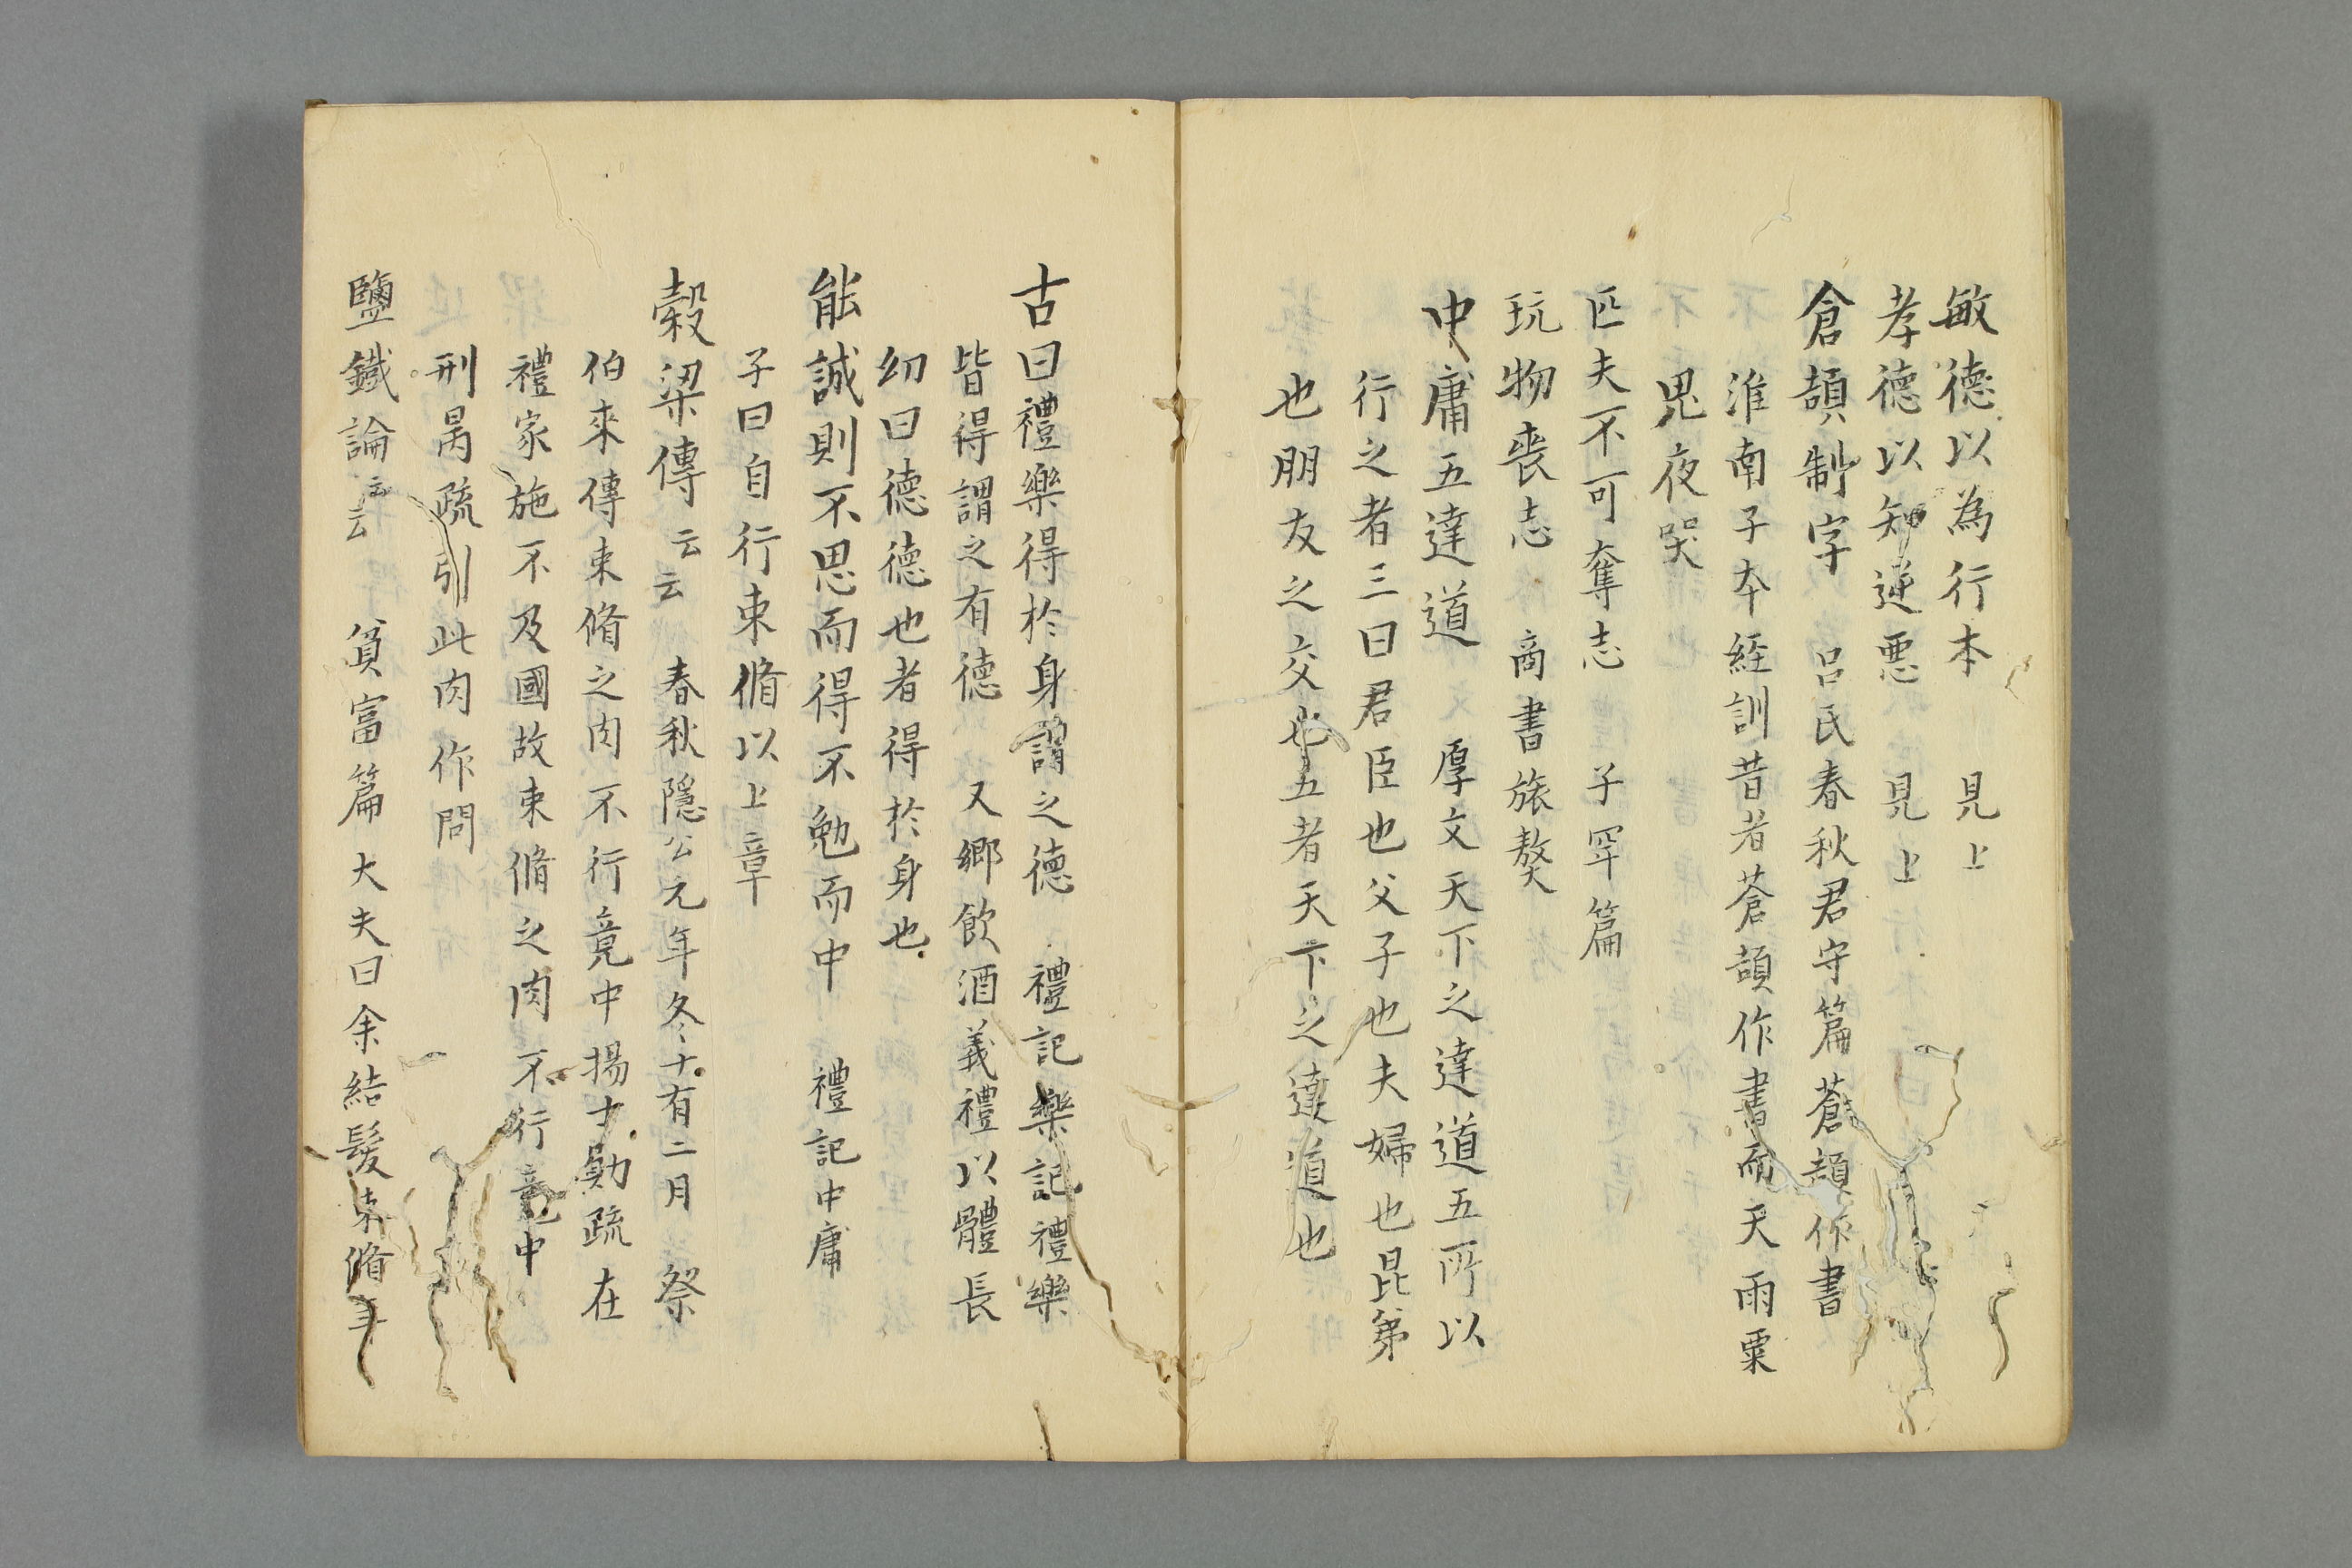 敏德以為行本　見上
孝德以知逆悪　見上
倉頡制字　呂氏春秋君守篇蒼頡作書
淮南子本経訓昔者蒼頡作書而天雨粟
鬼夜哭
匹夫不可奪志　子罕篇
玩物喪志　商書旅獒
中庸五達道　厚文天下之達道五所以
行之者三曰君臣也父子也夫婦也昆弟
也朋友之交也五者天下之達道也
古曰禮樂得於身謂之德　禮記樂記禮樂
皆得謂之有德　又鄉飲酒義禮以體長
幼曰德德也者得於身也
能誠則不思而得不勉而中　禮記中庸
子曰自行束脩以上章
穀梁傳云云　春秋隱公元年冬十有二月　祭
伯來傳束脩之肉不行竟中揚士勛疏在
禮家施不及國故束脩之肉不行竟中
刑昺疏引此肉作問
鹽鐵論云云　貧富篇大夫曰余結髮束脩年